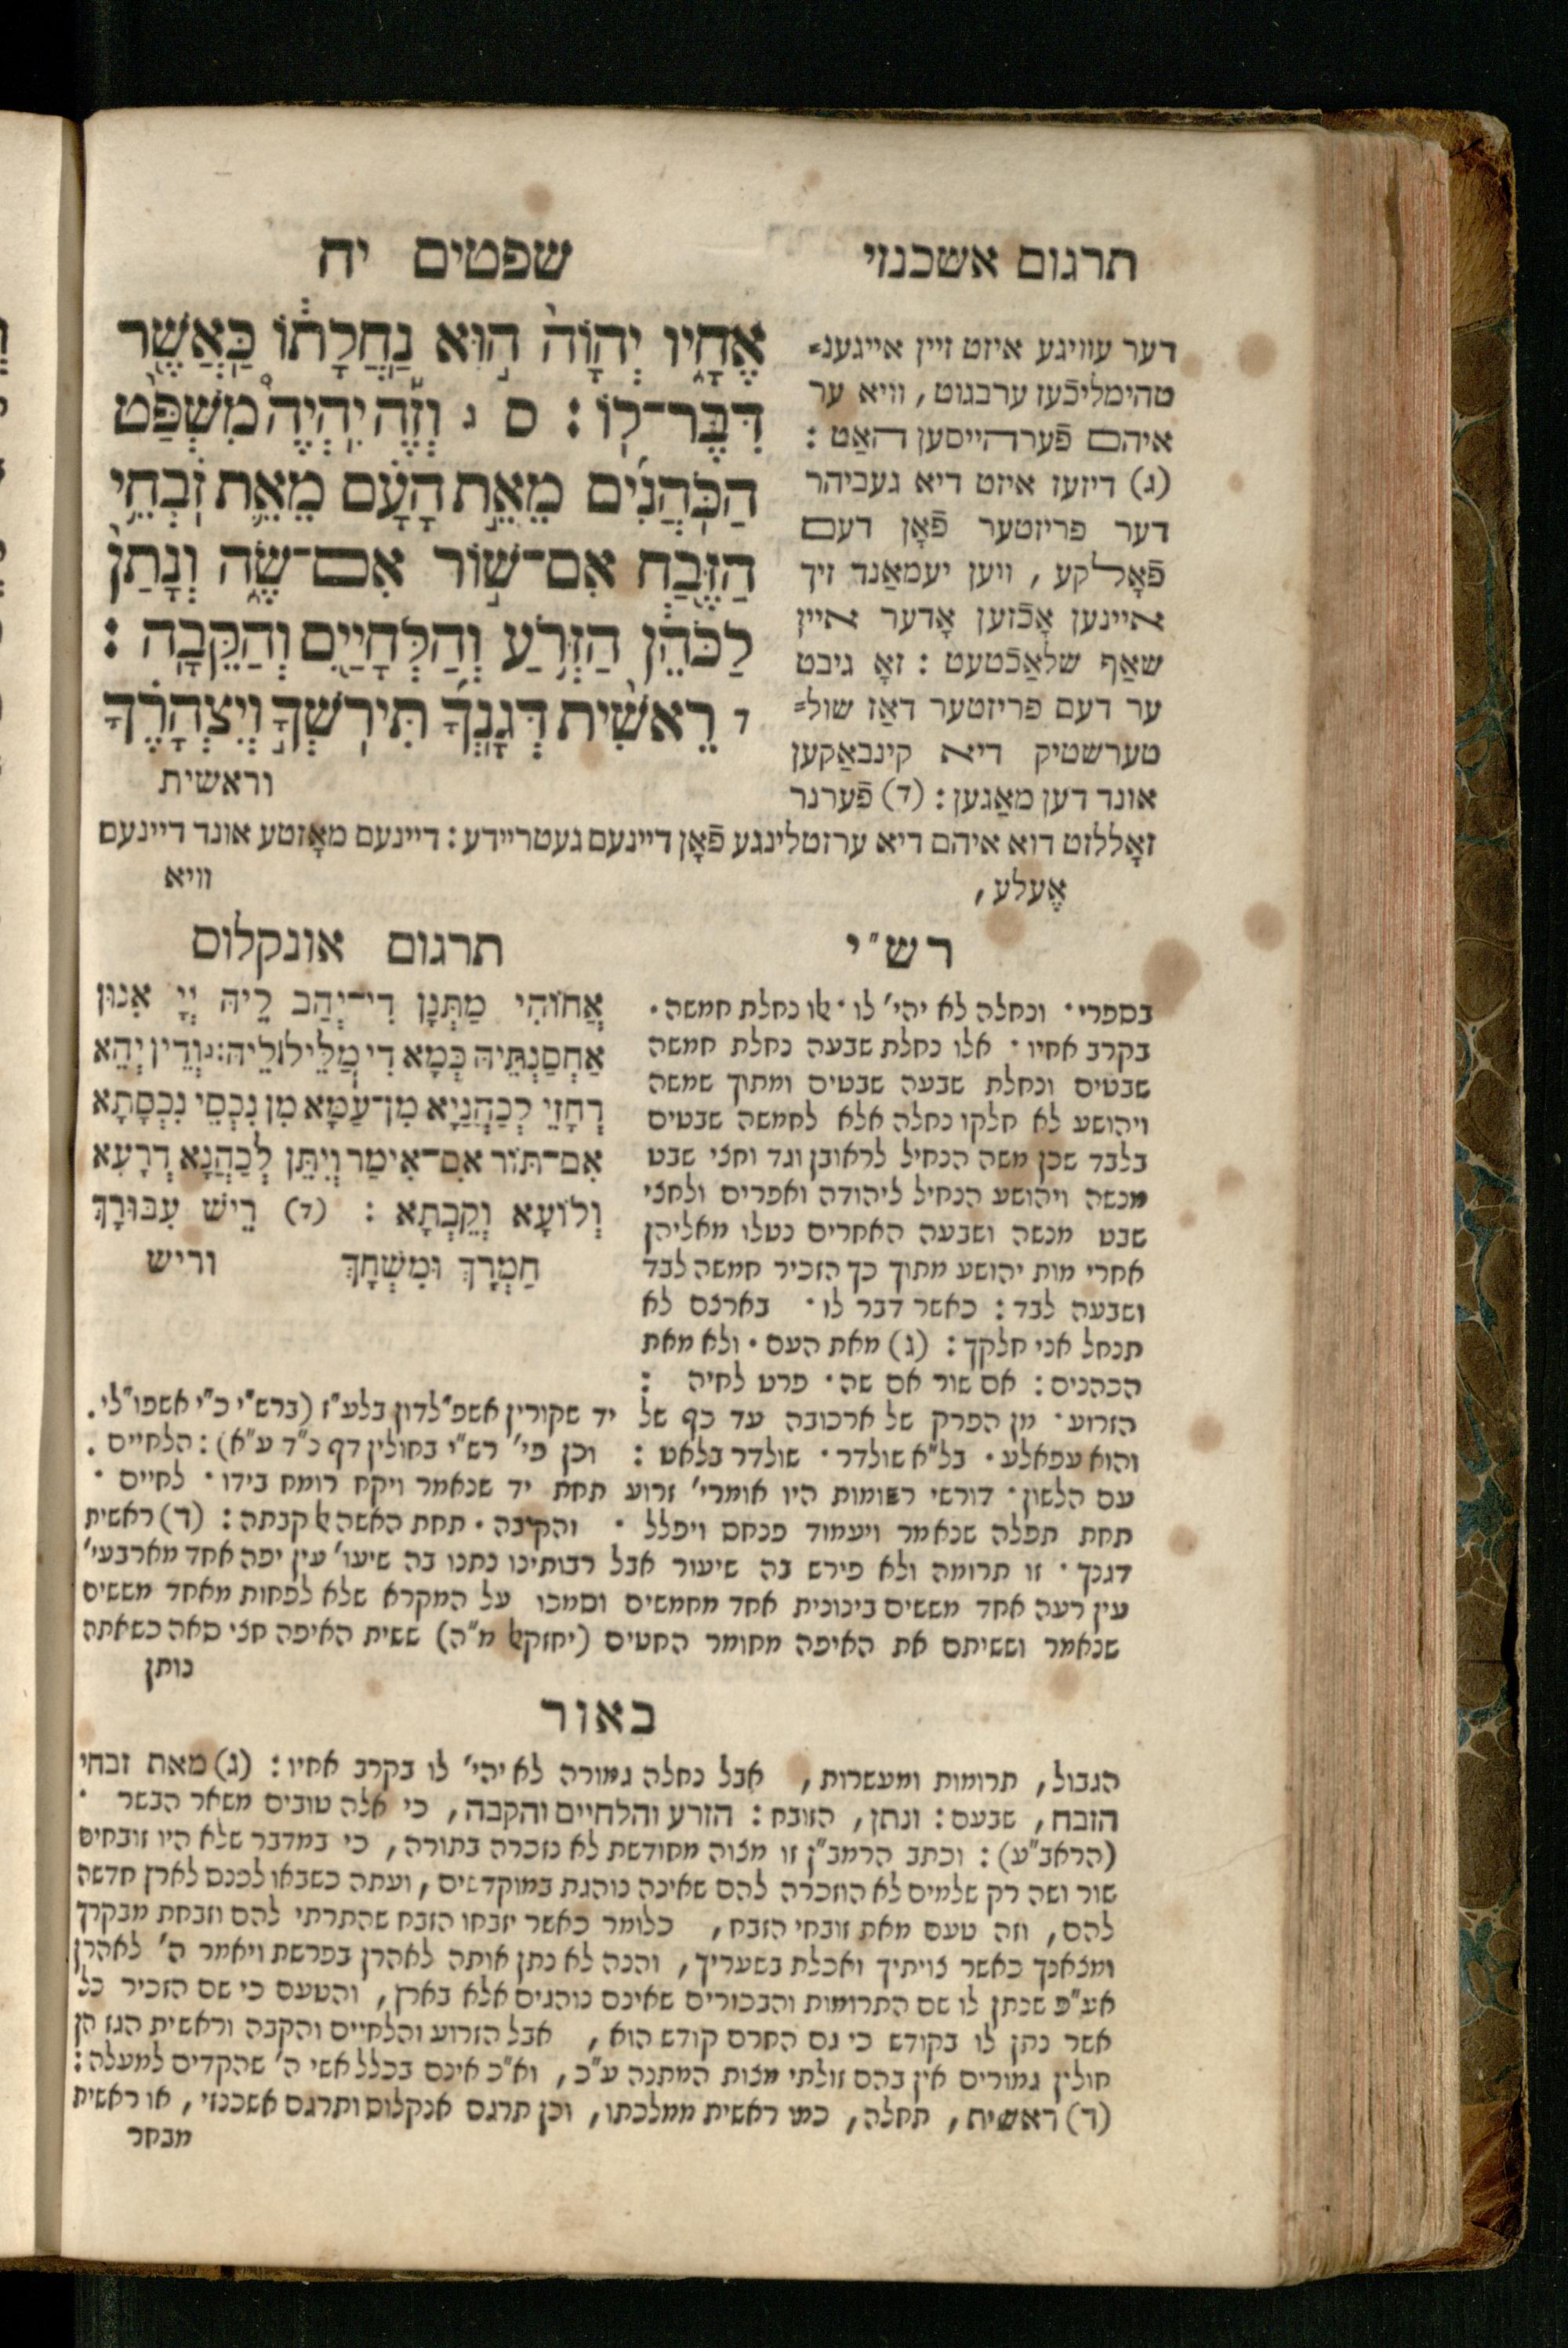 תרגום אשכנזי
שפטים יח
אֶחָ֑יו יְהוָֹה֙ ה֣וּא נַֽחֲלָת֔וֹ כַּֽאֲשֶׁ֖ר
דִּבֶּר־לֽוֹ׃ ס ג וְזֶ֡ה יִֽהְיֶה֩ מִשְׁפַּ֨ט
הַכֹּֽהֲנִ֜ים מֵאֵ֣ת הָעָ֗ם מֵאֵ֛ת זֹֽבְחֵ֥י
הַזֶּ֖בַח אִם־שׁ֣וֹר אִם־שֶׂ֑ה וְנָתַן֙
לַכֹּהֵ֔ן הַזְּרֹ֥עַ וְהַלְּחָיַ֖יִם וְהַקֵּבָֽה׃
ד רֵאשִׁ֨ית דְּגָֽנְךָ֜ תִּֽירֽשְׁךָ֣ וְיִצְהָרֶ֗ךָ
וראשית
דער עוויגע איזט זיין אייגענ=
טהימליכֿעז ערבגוט, וויא ער
איהם פֿערהייסען האַט :
(ג) דיזעז איזט דיא געביהר
דער פריזטער פֿאָן דעם
פֿאָלקע, ווען יעמאַנד זיך
איינען אָכֿזען אָדער איין
שאַף שלאַכֿטעט : זאָ גיבט
ער דעם פריזטער דאַז שול=
טערשטיק דיא קינבאַקען
אונד דען מאַגען : (ד) פֿערנר
זאָללזט דוא איהם דיא ערזטלינגע פֿאָן דיינעם געטריידע : דיינעם מאָזטע אונד דיינעם
אֶעלע,
וויא
רש"י
בספרי · ונחלה לא יהי' לו · אלו נחלת חמשה ·
בקרב אחיו · אלו נחלת שבעה נחלת חמשה
שבטים ונחלת שבעה שבטים ומתוך שמשה
ויהושע לא חלקו נחלה אלא לחמשה שבטים
בלבד שכן משה הנחיל לראובן וגד וחצי שבט
מנשה ויהושע הנחיל ליהודה ואפרים ולחצי
שבט מנשה ושבעה האחרים נטלו מאליהן
אחרי מות יהושע מתוך כך הזכיר חמשה לבד
ושבעה לבד : כאשר דבר לו · בארצם לא
תנחל אני חלקך : (ג) מאת העם · ולא מאת
הכהנים : אם שור אם שה · פרט לחיה :
הזרוע · מן הפרק של ארכובה עד כף של יד שקורין אשפ"לדון בלע"ז (ברש"י כ"י אשפו"לי.
והוא עפאלע · בל"א שולדר · שולדר בלאט : וכן פי' רש"י בחולין דף כ"ד ע"א) : הלחיים .
עם הלשון · דורשי רשומות היו אומרי' זרוע תחת יד שנאמר ויקח רומח בידו · לחיים ·
תחת תפלה שנאמר ויעמוד פנחם ויפלל · והקיבה · תחת האשה אל קבתה : (ד) ראשית
דגנך · זו תרומה ולא פירש בה שיעור אבל רבותינו נתנו בה שיעו' עין יפה אחד מארבעי'
עין רעה אחד מששים בינונית אחד מחמשים וסמכו על המקרא שלא לפחות מאחד מששים
שנאמר וששיתם את האיפה מחומר החטים (יחזקאל מ"ה) ששית האיפה חצי סאה כשאתה
נותן
תרגום אונקלוס
אֲחוֹהִי מַתְּנָן דִי־יְהַב לֵיהּ יְיָ אִנּוּן
אַחְסַנְתֵּיהּ כְּמָא דִי מַלֵּיל לֵיהּ : ג וְדֵין יְהֵא
דְחָזֵי לְכַהֲנַיָא מִן־עַמָּא מִן נִכְסֵי נִכְסָתָא
אִם־תּוֹר אִם־אִימַר וְיִתֵּן לְכַהֲנָא דְרָעָא
וְלוֹעָא וְקֵבְתָא : (ד) רֵישׁ עִבּוּרָךְ
חַמְרָךְ וּמִשְׁחָךְ
וריש
באור
הגבול, תרומות ומעשרות, אבל נחלה גמורה לא יהי' לו בקרב אחיו : (ג) מאת זבחי
הזבח, שבעם : ונתן, הזובח : הזרע והלחיים והקבה, כי אלה טובים משאר הבשר ·
(הראב"ע) : וכתב הרמב"ן זו מצוה מחודשת לא נזכרה בתורה, כי במדבר שלא היו זובחים
שור ושה רק שלמים לא הוזכרה להם שאינה נוהגת במוקדשים, ועתה כשבאו לכנס לארץ חדשה
להם, וזה טעם מאת זובחי הזבח, כלומר כאשר יזבחו הזבח שהתרתי להם וזבחת מבקרך
ומצאנך כאשר צויתיך ואכלת בשעריך, והנה לא נתן אותה לאהרן בפרשת ויאמר ה' לאהרן
אע"פ שנתן לו שם התרומות והבכורים שאינם נוהגים אלא בארץ, והטעם כי שם הזכיר כל
אשר נתן לו בקודש כי גם החרם קודש הוא, אבל הזרוע והלחיים והקבה וראשית הגז הן
חולין גמורים אין בהם זולתי מצות המתנה ע"כ, וא"כ אינם בכלל אשי ה' שהקדים למעלה :
(ד) ראשית, תחלה, כמו ראשית ממלכתו, וכן תרגם אנקלוס ותרגם אשכנזי, או ראשית
מבחר